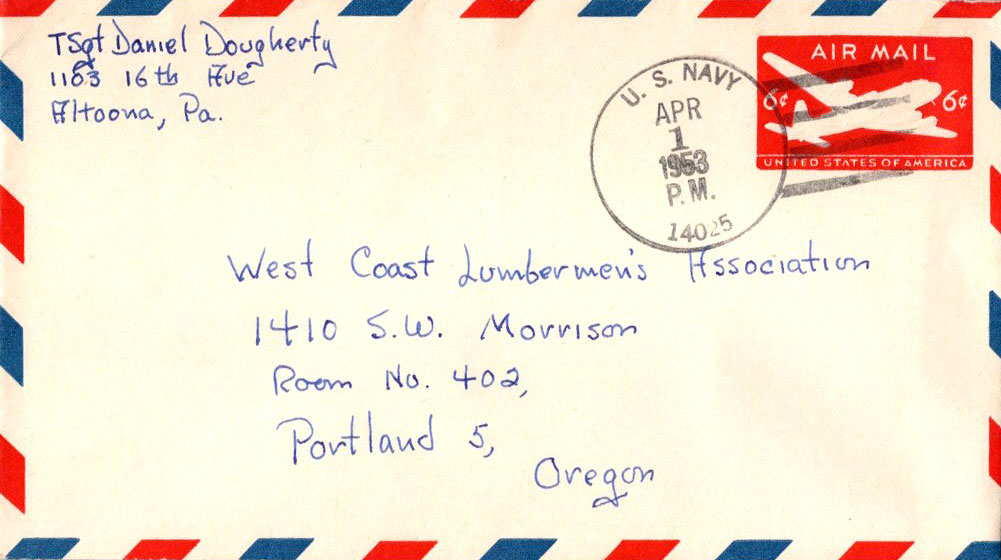 TSgt Daniel Dougherty
1103 16th Ave
Altoona, Pa.
U. S. NAVY
APR
1
1953
P.M.
14025
AIR MAIL
6¢ 6¢
UNITED STATES OF AMERICA
West Coast Lumbermen's Association
1410 S.W. Morrison
Room No. 402,
Portland 5,
Oregon